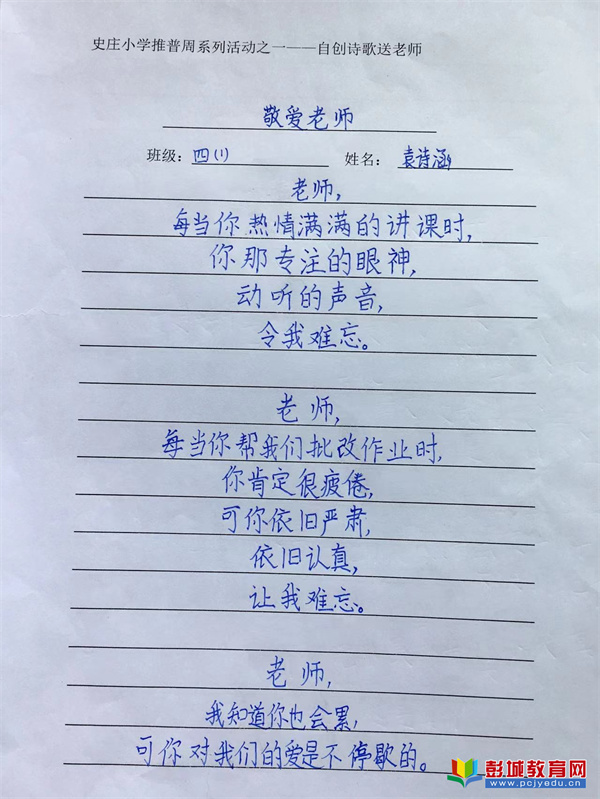 史庄小学推普周系列活动之一——自创诗歌送老师
敬爱老师
班级：四(1) 姓名：袁诗涵
老师，
每当你热情满满的讲课时，
你那专注的眼神，
动听的声音，
令我难忘。
老师，
每当你帮我们批改作业时，
你肯定很疲倦，
可你依旧严肃，
依旧认真，
让我难忘。
老师，
我知道你也会累，
可你对我们的爱是不停歇的。
彭城教育网
www.pcjyedu.cn